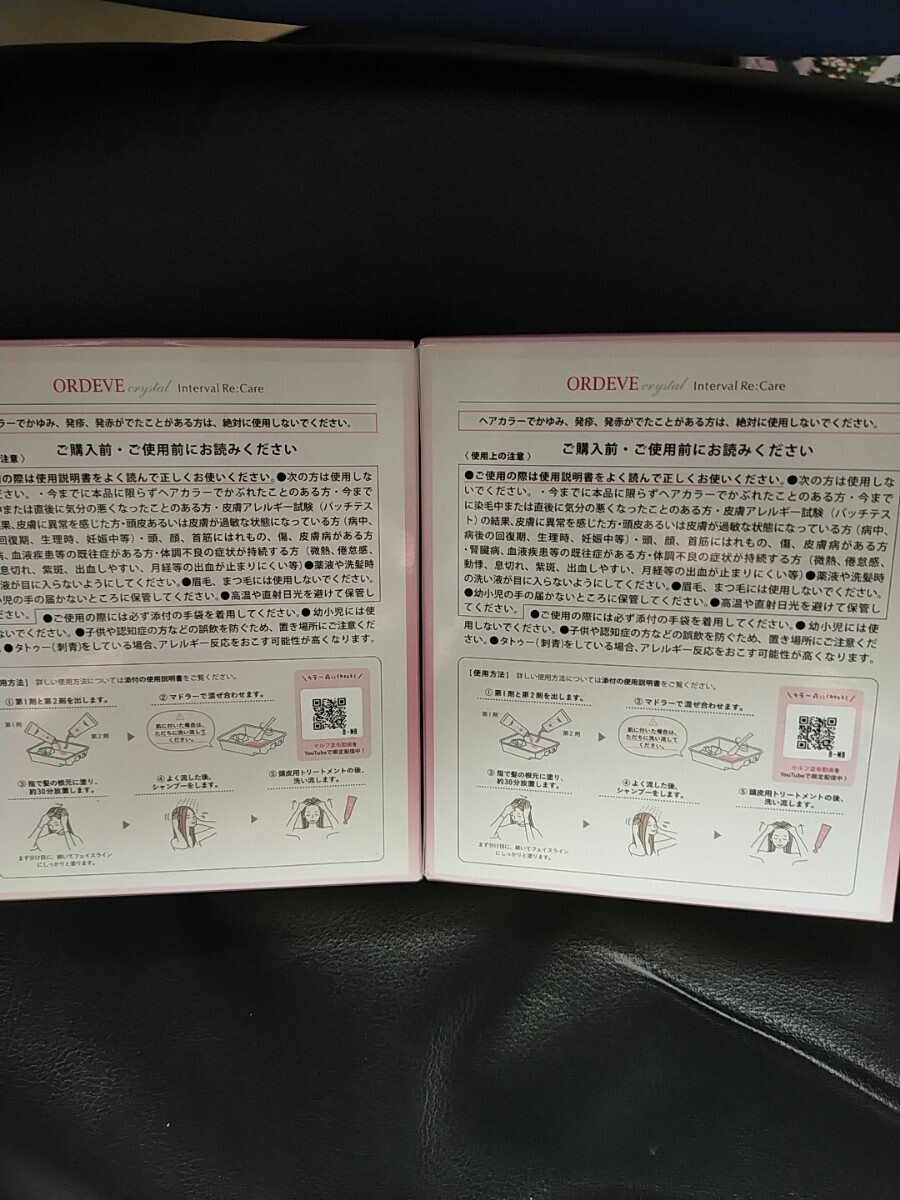 ORDEVE crystal Interval Re:Care
ラーでかゆみ、発疹、発赤がでたことがある方は、絶対に使用しないでください。
ご購入前・ご使用前にお読みください
注意〉
の際は使用説明書をよく読んで正しくお使いください。●次の方は使用しな
ださい。・今までに本品に限らずヘアカラーでかぶれたことのある方・今まで
中または直後に気分の悪くなったことのある方・皮膚アレルギー試験（パッチテス
果、皮膚に異常を感じた方・頭皮あるいは皮膚が過敏な状態になっている方（病中、
回復期、生理時、妊娠中等）・頭、顔、首筋にはれもの、傷、皮膚病がある方
病、血液疾患等の既往症がある方・体調不良の症状が持続する方（微熱、倦怠感、
息切れ、紫斑、出血しやすい、月経等の出血が止まりにくい等）●薬液や洗髪時
液が目に入らないようにしてください。●眉毛、まつ毛には使用しないでください。
小児の手の届かないところに保管してください。●高温や直射日光を避けて保管し
ください。●ご使用の際には必ず添付の手袋を着用してください。●幼小児には使
ないでください。●子供や認知症の方などの誤飲を防ぐため、置き場所にご注意くだ
●タトゥー（刺青）をしている場合、アレルギー反応をおこす可能性が高くなります。
用方法］ 詳しい使用方法については添付の使用説明書をご覧ください。
①第1剤と第2剤を出します。
第1剤
第2剤
②マドラーで混ぜ合わせます。
肌に付いた場合は、
ただちに洗い流して
ください。
カラー前にCheck!
8-NB
セルフ塗布動画を
YouTubeで限定配信中！
③指で髪の根元に塗り、
約30分放置します。
まず分け目に、続いてフェイスライン
にしっかりと塗ります。
④よく流した後、
シャンプーをします。
⑤頭皮用トリートメントの後、
洗い流します。
ORDEVE crystal Interval Re:Care
ヘアカラーでかゆみ、発疹、発赤がでたことがある方は、絶対に使用しないでください。
ご購入前・ご使用前にお読みください
〈使用上の注意〉
●ご使用の際は使用説明書をよく読んで正しくお使いください。●次の方は使用しな
いでください。・今までに本品に限らずヘアカラーでかぶれたことのある方・今まで
に染毛中または直後に気分の悪くなったことのある方・皮膚アレルギー試験（パッチテス
ト）の結果、皮膚に異常を感じた方・頭皮あるいは皮膚が過敏な状態になっている方（病中、
病後の回復期、生理時、妊娠中等）・頭、顔、首筋にはれもの、傷、皮膚病がある方
・腎臓病、血液疾患等の既往症がある方・体調不良の症状が持続する方（微熱、倦怠感、
動悸、息切れ、紫斑、出血しやすい、月経等の出血が止まりにくい等）●薬液や洗髪時
の洗い液が目に入らないようにしてください。●眉毛、まつ毛には使用しないでください。
●幼小児の手の届かないところに保管してください。●高温や直射日光を避けて保管し
てください。●ご使用の際には必ず添付の手袋を着用してください。●幼小児には使
用しないでください。●子供や認知症の方などの誤飲を防ぐため、置き場所にご注意くだ
さい。●タトゥー（刺青）をしている場合、アレルギー反応をおこす可能性が高くなります。
［使用方法］ 詳しい使用方法については添付の使用説明書をご覧ください。
①第1剤と第2剤を出します。
第1剤
第2剤
②マドラーで混ぜ合わせます。
肌に付いた場合は、
ただちに洗い流して
ください。
カラー前にCheck!
8-NB
セルフ塗布動画を
YouTubeで限定配信中！
③指で髪の根元に塗り、
約30分放置します。
まず分け目に、続いてフェイスライン
にしっかりと塗ります。
④よく流した後、
シャンプーをします。
⑤頭皮用トリートメントの後、
洗い流します。